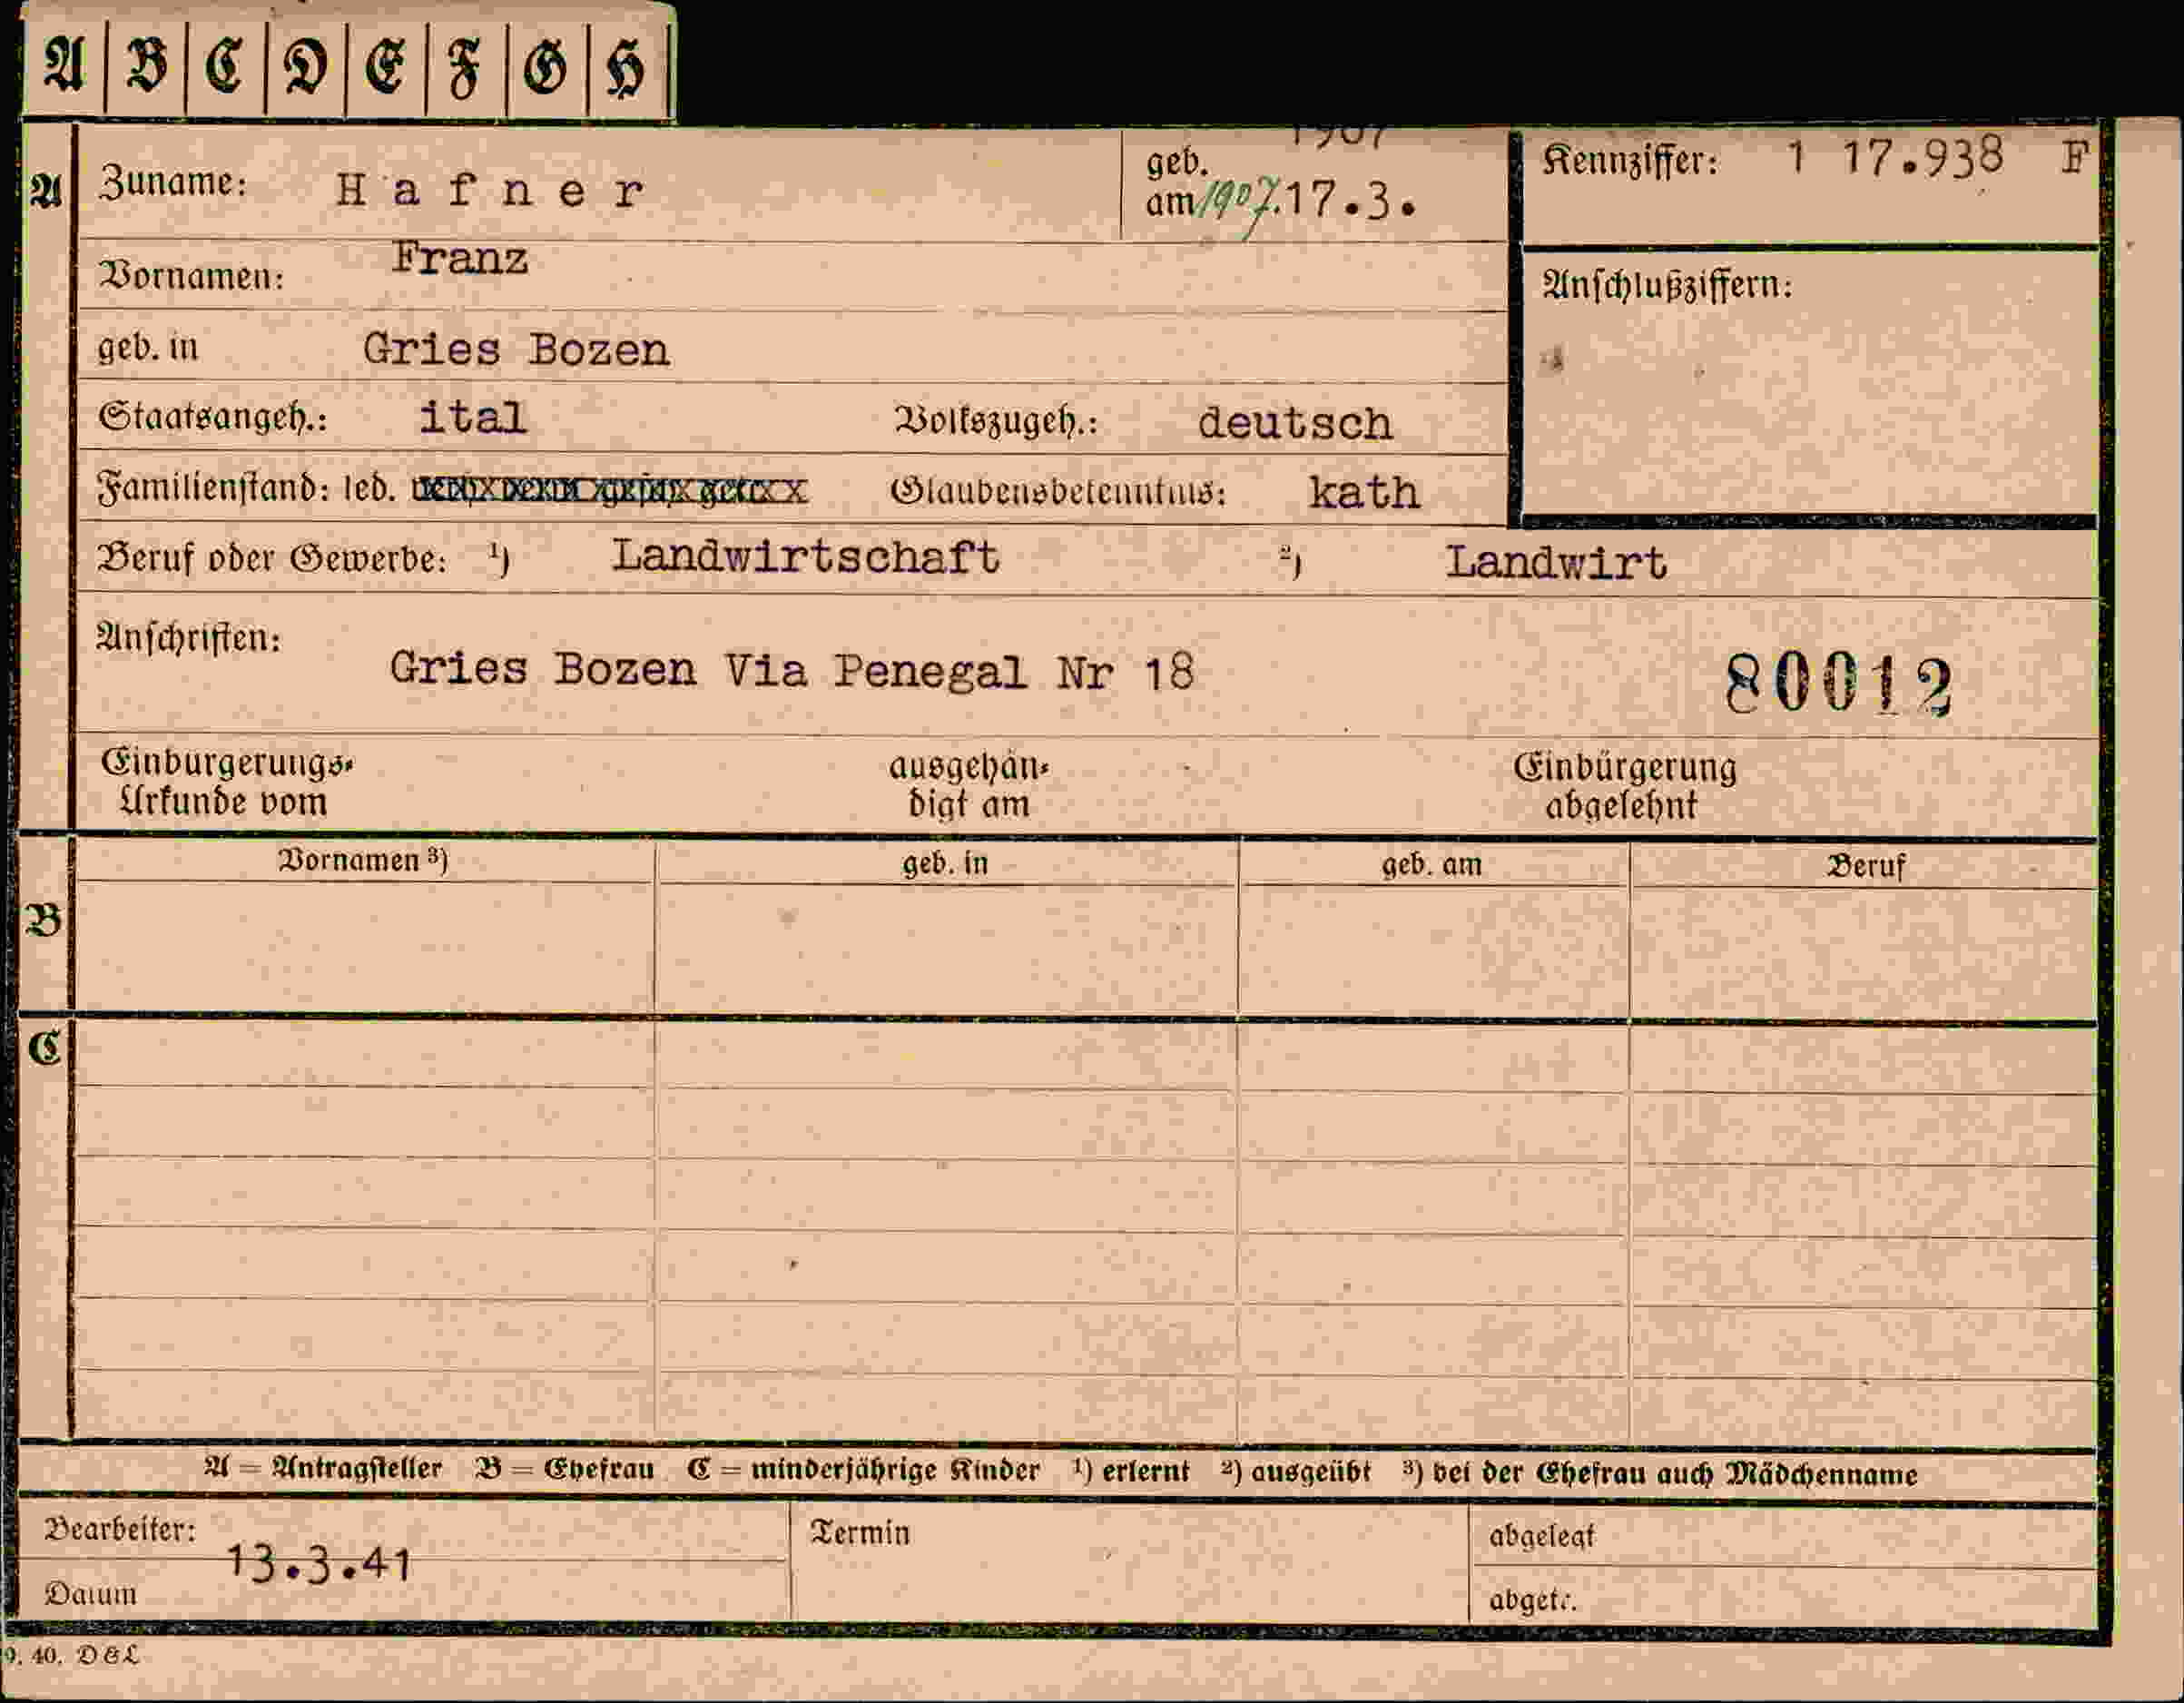 A B C D E F G H
A Zuname: Hafner geb. am 1907 1907. 17.3. Kennziffer: 1 17.938 F
Vornamen: Franz Anschlußziffern:
geb. in Gries Bozen
Staatsangeh.: ital Volkszugeh.: deutsch
Familienstand: led. Glaubensbekenntnis: kath
Beruf oder Gewerbe: ¹) Landwirtschaft ²) Landwirt
Anschriften: Gries Bozen Via Penegal Nr 18 80012
Einbürgerungs- ausgehän- Einbürgerung
Urkunde vom digt am abgelehnt
Vornamen ³) geb. in geb. am Beruf
B
C
A = Antragsteller B = Ehefrau C = minderjährige Kinder ¹) erlernt ²) ausgeübt ³) bei der Ehefrau auch Mädchenname
Bearbeiter: Termin abgelegt
13.3.41
Datum abgetr.
9. 40. D&L